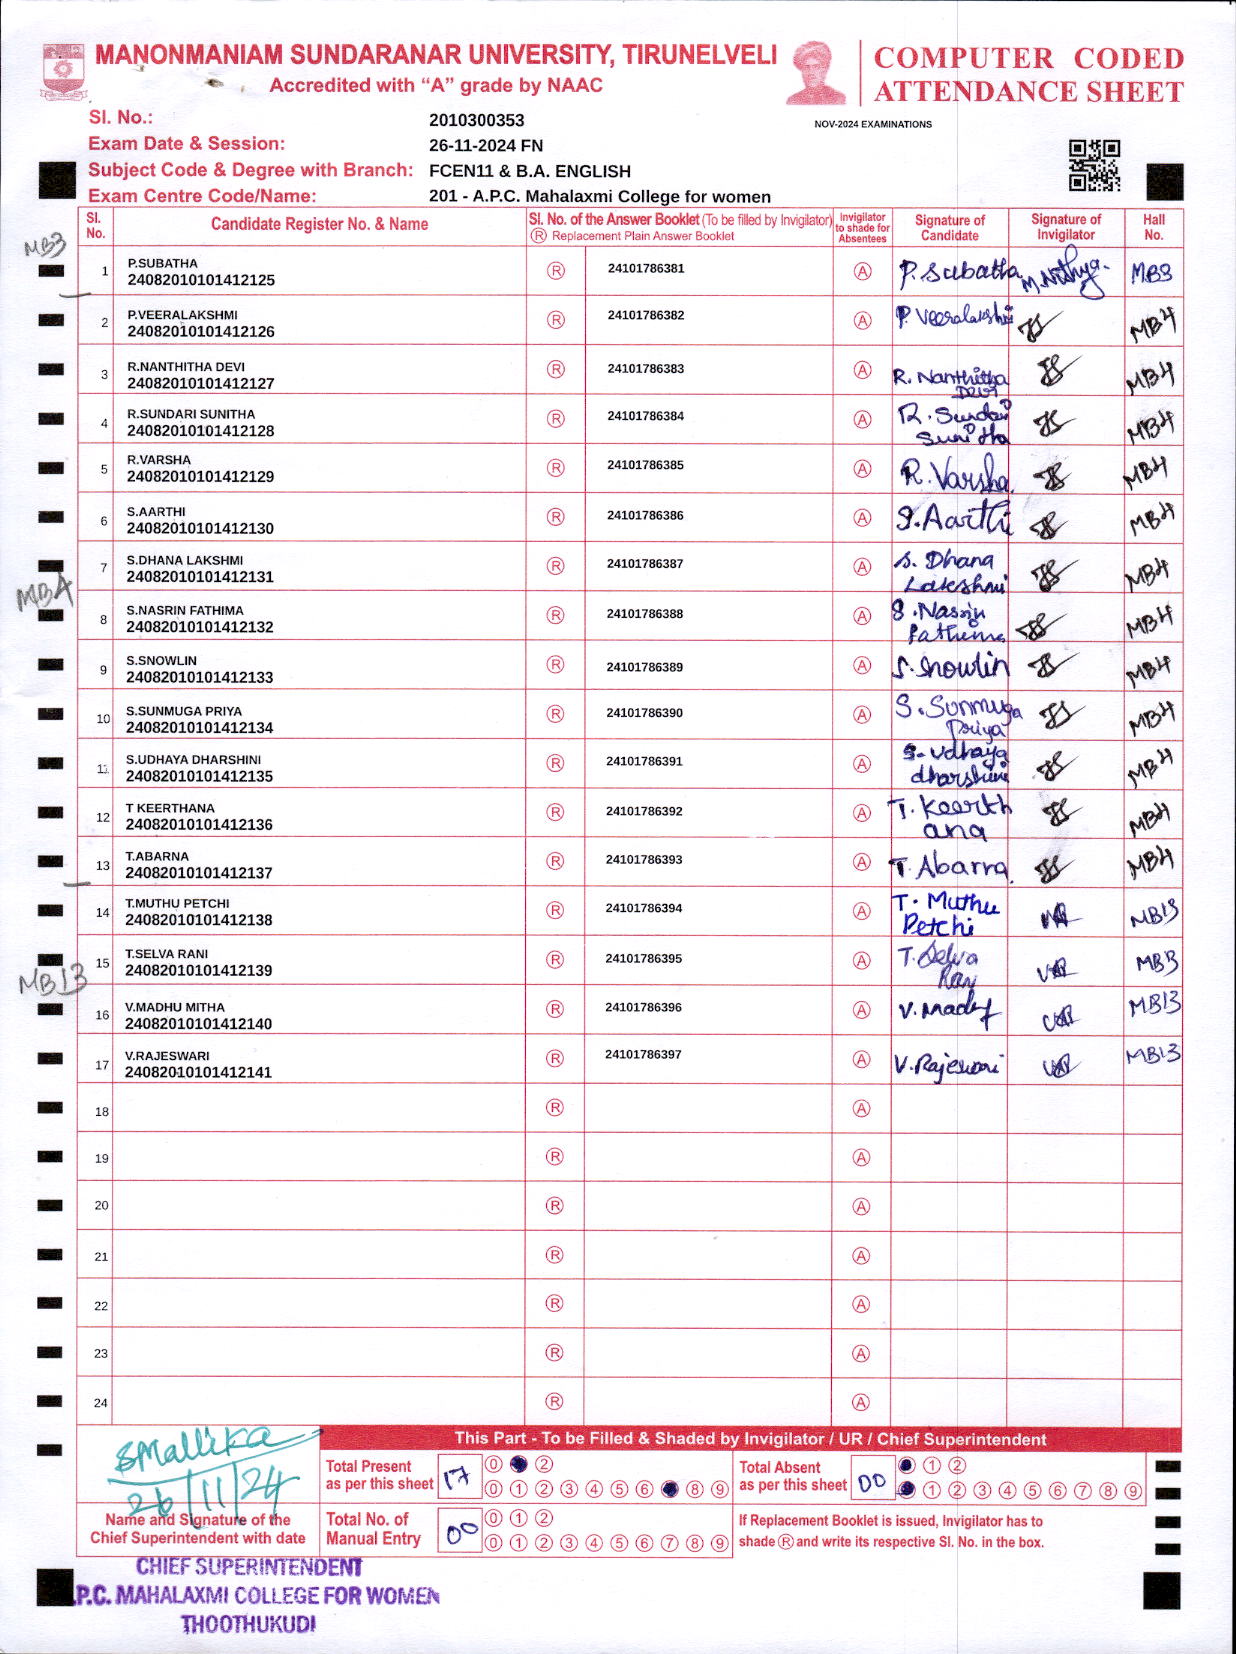 MANONMANIAM SUNDARANAR UNIVERSITY, TIRUNELVELI
Accredited with “A” grade by NAAC
COMPUTER CODED
ATTENDANCE SHEET
NOV-2024 EXAMINATIONS
Sl. No.: 2010300353
Exam Date & Session: 26-11-2024 FN
Subject Code & Degree with Branch: FCEN11 & B.A. ENGLISH
Exam Centre Code/Name: 201 - A.P.C. Mahalaxmi College for women
Sl. No. Candidate Register No. & Name Sl. No. of the Answer Booklet (To be filled by Invigilator) Ⓡ Replacement Plain Answer Booklet Invigilator to shade for Absentees Signature of Candidate Signature of Invigilator Hall No.
MB3
1 P.SUBATHA 24082010101412125 Ⓡ 24101786381 Ⓐ P. Subatha M. Nithya. MB3
2 P.VEERALAKSHMI 24082010101412126 Ⓡ 24101786382 Ⓐ P. Veeralakshmi MB4
3 R.NANTHITHA DEVI 24082010101412127 Ⓡ 24101786383 Ⓐ R. Nanthitha Devi MB4
4 R.SUNDARI SUNITHA 24082010101412128 Ⓡ 24101786384 Ⓐ R. Sundari Sunitha MB4
5 R.VARSHA 24082010101412129 Ⓡ 24101786385 Ⓐ R. Varsha MB4
6 S.AARTHI 24082010101412130 Ⓡ 24101786386 Ⓐ S. Aarthi MB4
7 S.DHANA LAKSHMI 24082010101412131 Ⓡ 24101786387 Ⓐ S. Dhana Lakshmi MB4
MB4
8 S.NASRIN FATHIMA 24082010101412132 Ⓡ 24101786388 Ⓐ S. Nasrin Fathima MB4
9 S.SNOWLIN 24082010101412133 Ⓡ 24101786389 Ⓐ S. Snowlin MB4
10 S.SUNMUGA PRIYA 24082010101412134 Ⓡ 24101786390 Ⓐ S. Sunmuga Priya MB4
11 S.UDHAYA DHARSHINI 24082010101412135 Ⓡ 24101786391 Ⓐ S. Udhaya dharshini MB4
12 T KEERTHANA 24082010101412136 Ⓡ 24101786392 Ⓐ T. Keerthana MB4
13 T.ABARNA 24082010101412137 Ⓡ 24101786393 Ⓐ T. Abarna MB4
14 T.MUTHU PETCHI 24082010101412138 Ⓡ 24101786394 Ⓐ T. Muthu Petchi MB13
15 T.SELVA RANI 24082010101412139 Ⓡ 24101786395 Ⓐ T. Selva Rani MB13
MB13
16 V.MADHU MITHA 24082010101412140 Ⓡ 24101786396 Ⓐ V. Madhu MB13
17 V.RAJESWARI 24082010101412141 Ⓡ 24101786397 Ⓐ V. Rajeswari MB13
18 Ⓡ Ⓐ
19 Ⓡ Ⓐ
20 Ⓡ Ⓐ
21 Ⓡ Ⓐ
22 Ⓡ Ⓐ
23 Ⓡ Ⓐ
24 Ⓡ Ⓐ
SMallika
26/11/24
Name and Signature of the
Chief Superintendent with date
This Part - To be Filled & Shaded by Invigilator / UR / Chief Superintendent
Total Present as per this sheet 17
0 2
0 1 2 3 4 5 6 8 9
Total Absent as per this sheet 00
1 2
1 2 3 4 5 6 7 8 9
Total No. of Manual Entry 00
0 1 2
0 1 2 3 4 5 6 7 8 9
If Replacement Booklet is issued, Invigilator has to
shade Ⓡ and write its respective Sl. No. in the box.
CHIEF SUPERINTENDENT
.P.C. MAHALAXMI COLLEGE FOR WOMEN
THOOTHUKUDI